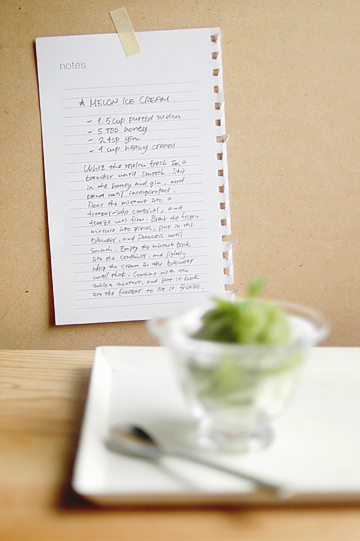 notes
★ MELON ICE CREAM
- 1.5 cup pureed melon
- 5 TBS honey
- 2 tsp gin
- 1 cup heavy cream
Whizz the melon flesh in a
blender until smooth. Stir
in the honey and gin, and
until incorporated.
Pour the mixture into a
freezer-safe container, and
freeze until firm. Break the frozen
mixture into pieces, put in the
blender, and process until
smooth. Empty the mixture back
into the container, and lightly
whip the cream in the blender
until thick. Combine with the
melon mixture, and put it back
in the freezer to let it freeze.